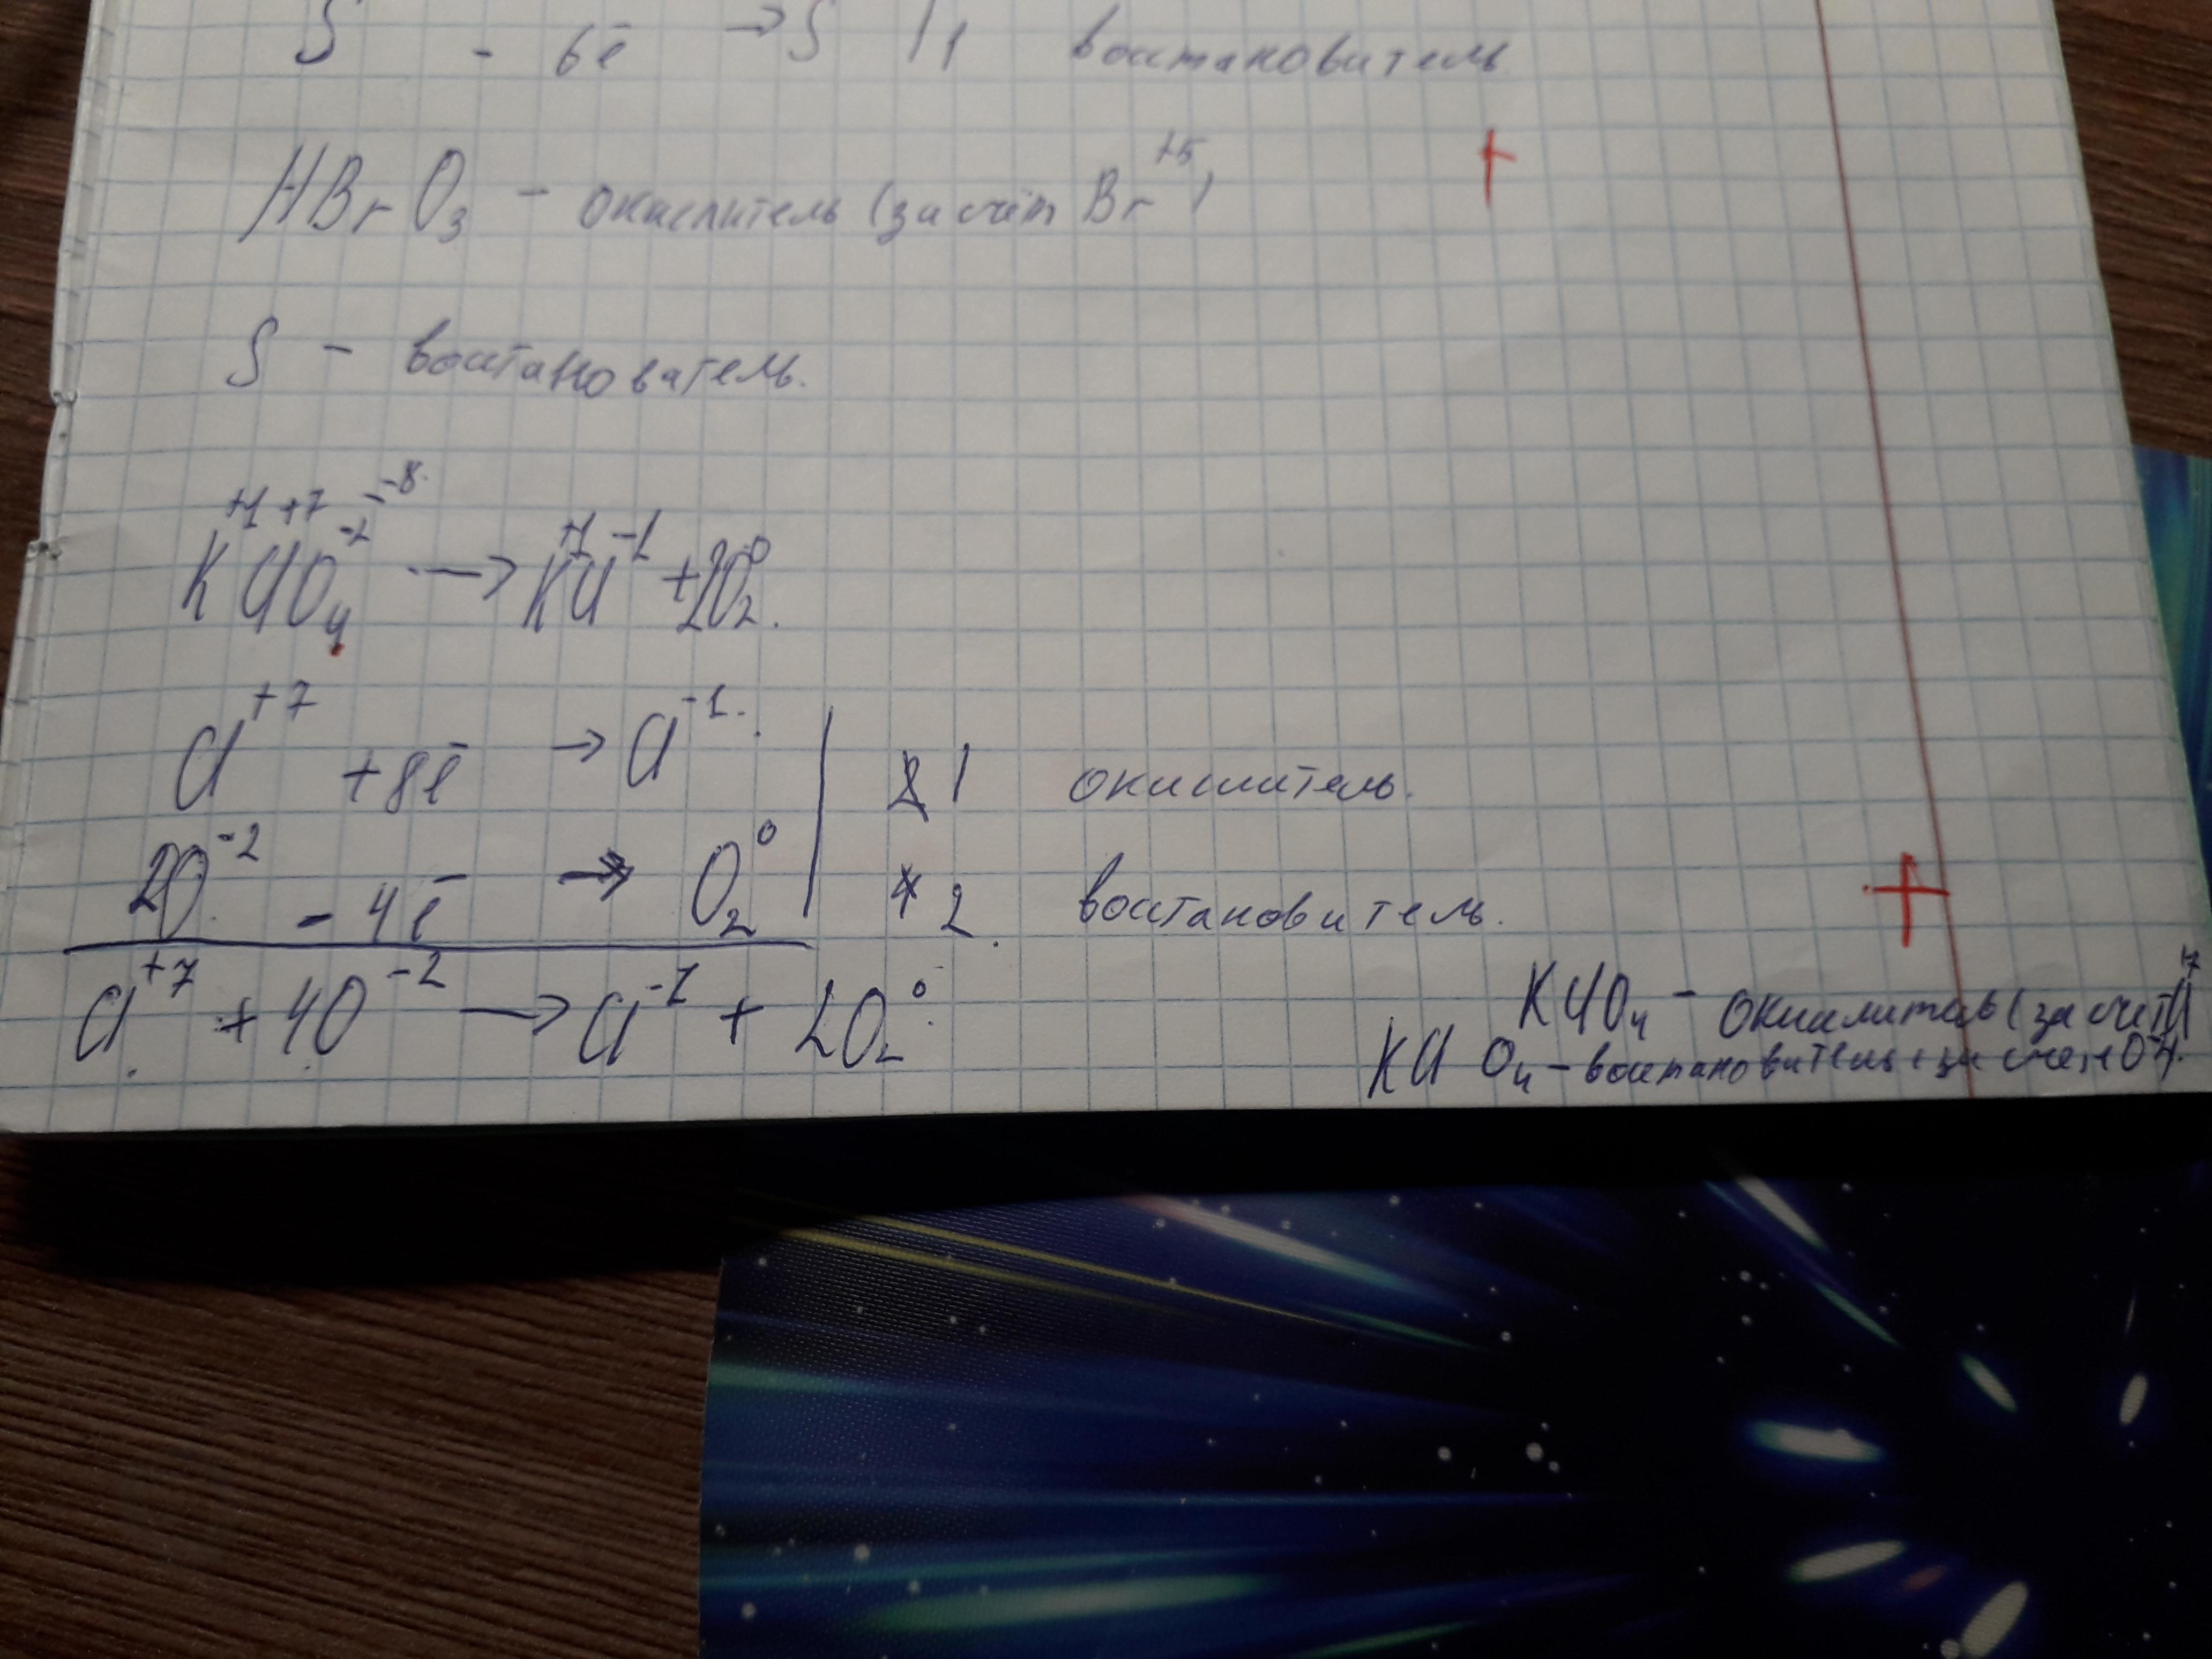 S - 6ē → S | 1 восстановитель
HBrO₃ - окислитель (за счёт Br⁺⁵)
S - восстанователь.
+1 +7 -2 -8
KClO₄ → K⁺¹Cl⁻¹ + 2O₂⁰.
Cl⁺⁷ + 8ē → Cl⁻¹. | 1 окислитель.
2O⁻² - 4ē → O₂⁰ | 2. восстановитель.
Cl⁺⁷ + 4O⁻² → Cl⁻¹ + 2O₂⁰
KClO₄ - окислитель (за счёт Cl⁺⁷
KClO₄ - восстановитель за счёт